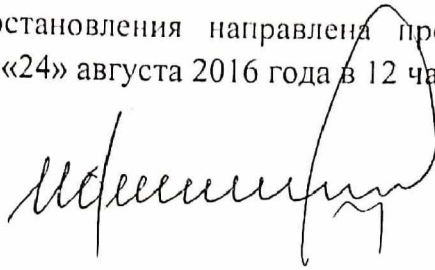 остановления направлена про
«24» августа 2016 года в 12 ча